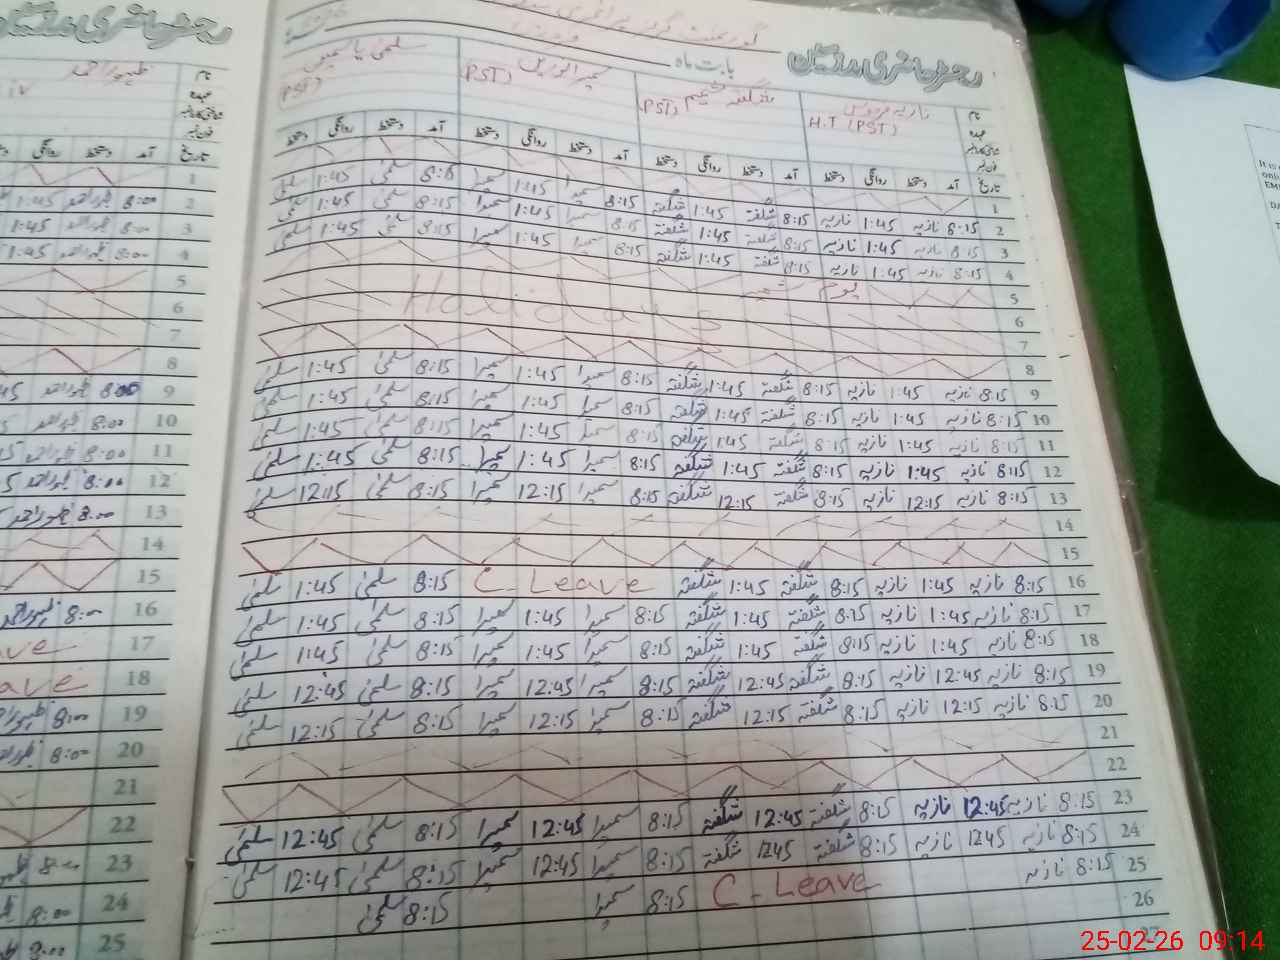 رجسٹر حاضری مدرسین
بابت ماہ
نام نازیہ فردوس شگفتہ شمیم سمیرا نورین سلمیٰ یاسمین
عہدہ H.T (PST) (PST) (PST) (PST)
تاریخ آمد دستخط روانگی دستخط آمد دستخط روانگی دستخط آمد دستخط روانگی دستخط آمد دستخط روانگی دستخط
1
2 8:15 نازیہ 1:45 نازیہ 8:15 شگفتہ 1:45 شگفتہ 8:15 سمیرا 1:45 سمیرا 8:15 سلمیٰ 1:45 سلمیٰ
3 8:15 نازیہ 1:45 نازیہ 8:15 شگفتہ 1:45 شگفتہ 8:15 سمیرا 1:45 سمیرا 8:15 سلمیٰ 1:45 سلمیٰ
4 8:15 نازیہ 1:45 نازیہ 8:15 شگفتہ 1:45 شگفتہ 8:15 سمیرا 1:45 سمیرا 8:15 سلمیٰ 1:45 سلمیٰ
5 یوم کشمیر
6 Holidays
7
8
9 8:15 نازیہ 1:45 نازیہ 8:15 شگفتہ 1:45 شگفتہ 8:15 سمیرا 1:45 سمیرا 8:15 سلمیٰ 1:45 سلمیٰ
10 8:15 نازیہ 1:45 نازیہ 8:15 شگفتہ 1:45 شگفتہ 8:15 سمیرا 1:45 سمیرا 8:15 سلمیٰ 1:45 سلمیٰ
11 8:15 نازیہ 1:45 نازیہ 8:15 شگفتہ 1:45 شگفتہ 8:15 سمیرا 1:45 سمیرا 8:15 سلمیٰ 1:45 سلمیٰ
12 8:15 نازیہ 1:45 نازیہ 8:15 شگفتہ 1:45 شگفتہ 8:15 سمیرا 1:45 سمیرا 8:15 سلمیٰ 1:45 سلمیٰ
13 8:15 نازیہ 12:15 نازیہ 8:15 شگفتہ 12:15 شگفتہ 8:15 سمیرا 12:15 سمیرا 8:15 سلمیٰ 12:15 سلمیٰ
14
15
16 8:15 نازیہ 1:45 نازیہ 8:15 شگفتہ 1:45 شگفتہ C-Leave 8:15 سلمیٰ 1:45 سلمیٰ
17 8:15 نازیہ 1:45 نازیہ 8:15 شگفتہ 1:45 شگفتہ 8:15 سمیرا 1:45 سمیرا 8:15 سلمیٰ 1:45 سلمیٰ
18 8:15 نازیہ 1:45 نازیہ 8:15 شگفتہ 1:45 شگفتہ 8:15 سمیرا 1:45 سمیرا 8:15 سلمیٰ 1:45 سلمیٰ
19 8:15 نازیہ 12:45 نازیہ 8:15 شگفتہ 12:45 شگفتہ 8:15 سمیرا 12:45 سمیرا 8:15 سلمیٰ 12:45 سلمیٰ
20 8:15 نازیہ 12:15 نازیہ 8:15 شگفتہ 12:15 شگفتہ 8:15 سمیرا 12:15 سمیرا 8:15 سلمیٰ 12:15 سلمیٰ
21
22
23 8:15 نازیہ 12:45 نازیہ 8:15 شگفتہ 12:45 شگفتہ 8:15 سمیرا 12:45 سمیرا 8:15 سلمیٰ 12:45 سلمیٰ
24 8:15 نازیہ 1245 نازیہ 8:15 شگفتہ 1245 شگفتہ 8:15 سمیرا 12:45 سمیرا 8:15 سلمیٰ 12:45 سلمیٰ
25 8:15 نازیہ C-Leave 8:15 سمیرا 8:15 سلمیٰ
26
رجسٹر حاضری مدرسین
نام ظہور احمد
تاریخ آمد دستخط روانگی
1
2 8:00 ظہور احمد 1:45
3 8:00 ظہور احمد 1:45
4 8:00 ظہور احمد 1:45
5
6
7
8
9 8:00 ظہور احمد
10 8:00 ظہور احمد
11 8:00 ظہور احمد
12 8:00 ظہور احمد
13 8:00 ظہور احمد
14
15
16 8:00 ظہور احمد
17
18
19 8:00
20 8:00
21
22
23 8:00
24 8:00
25 8:00
25-02-26 09:14